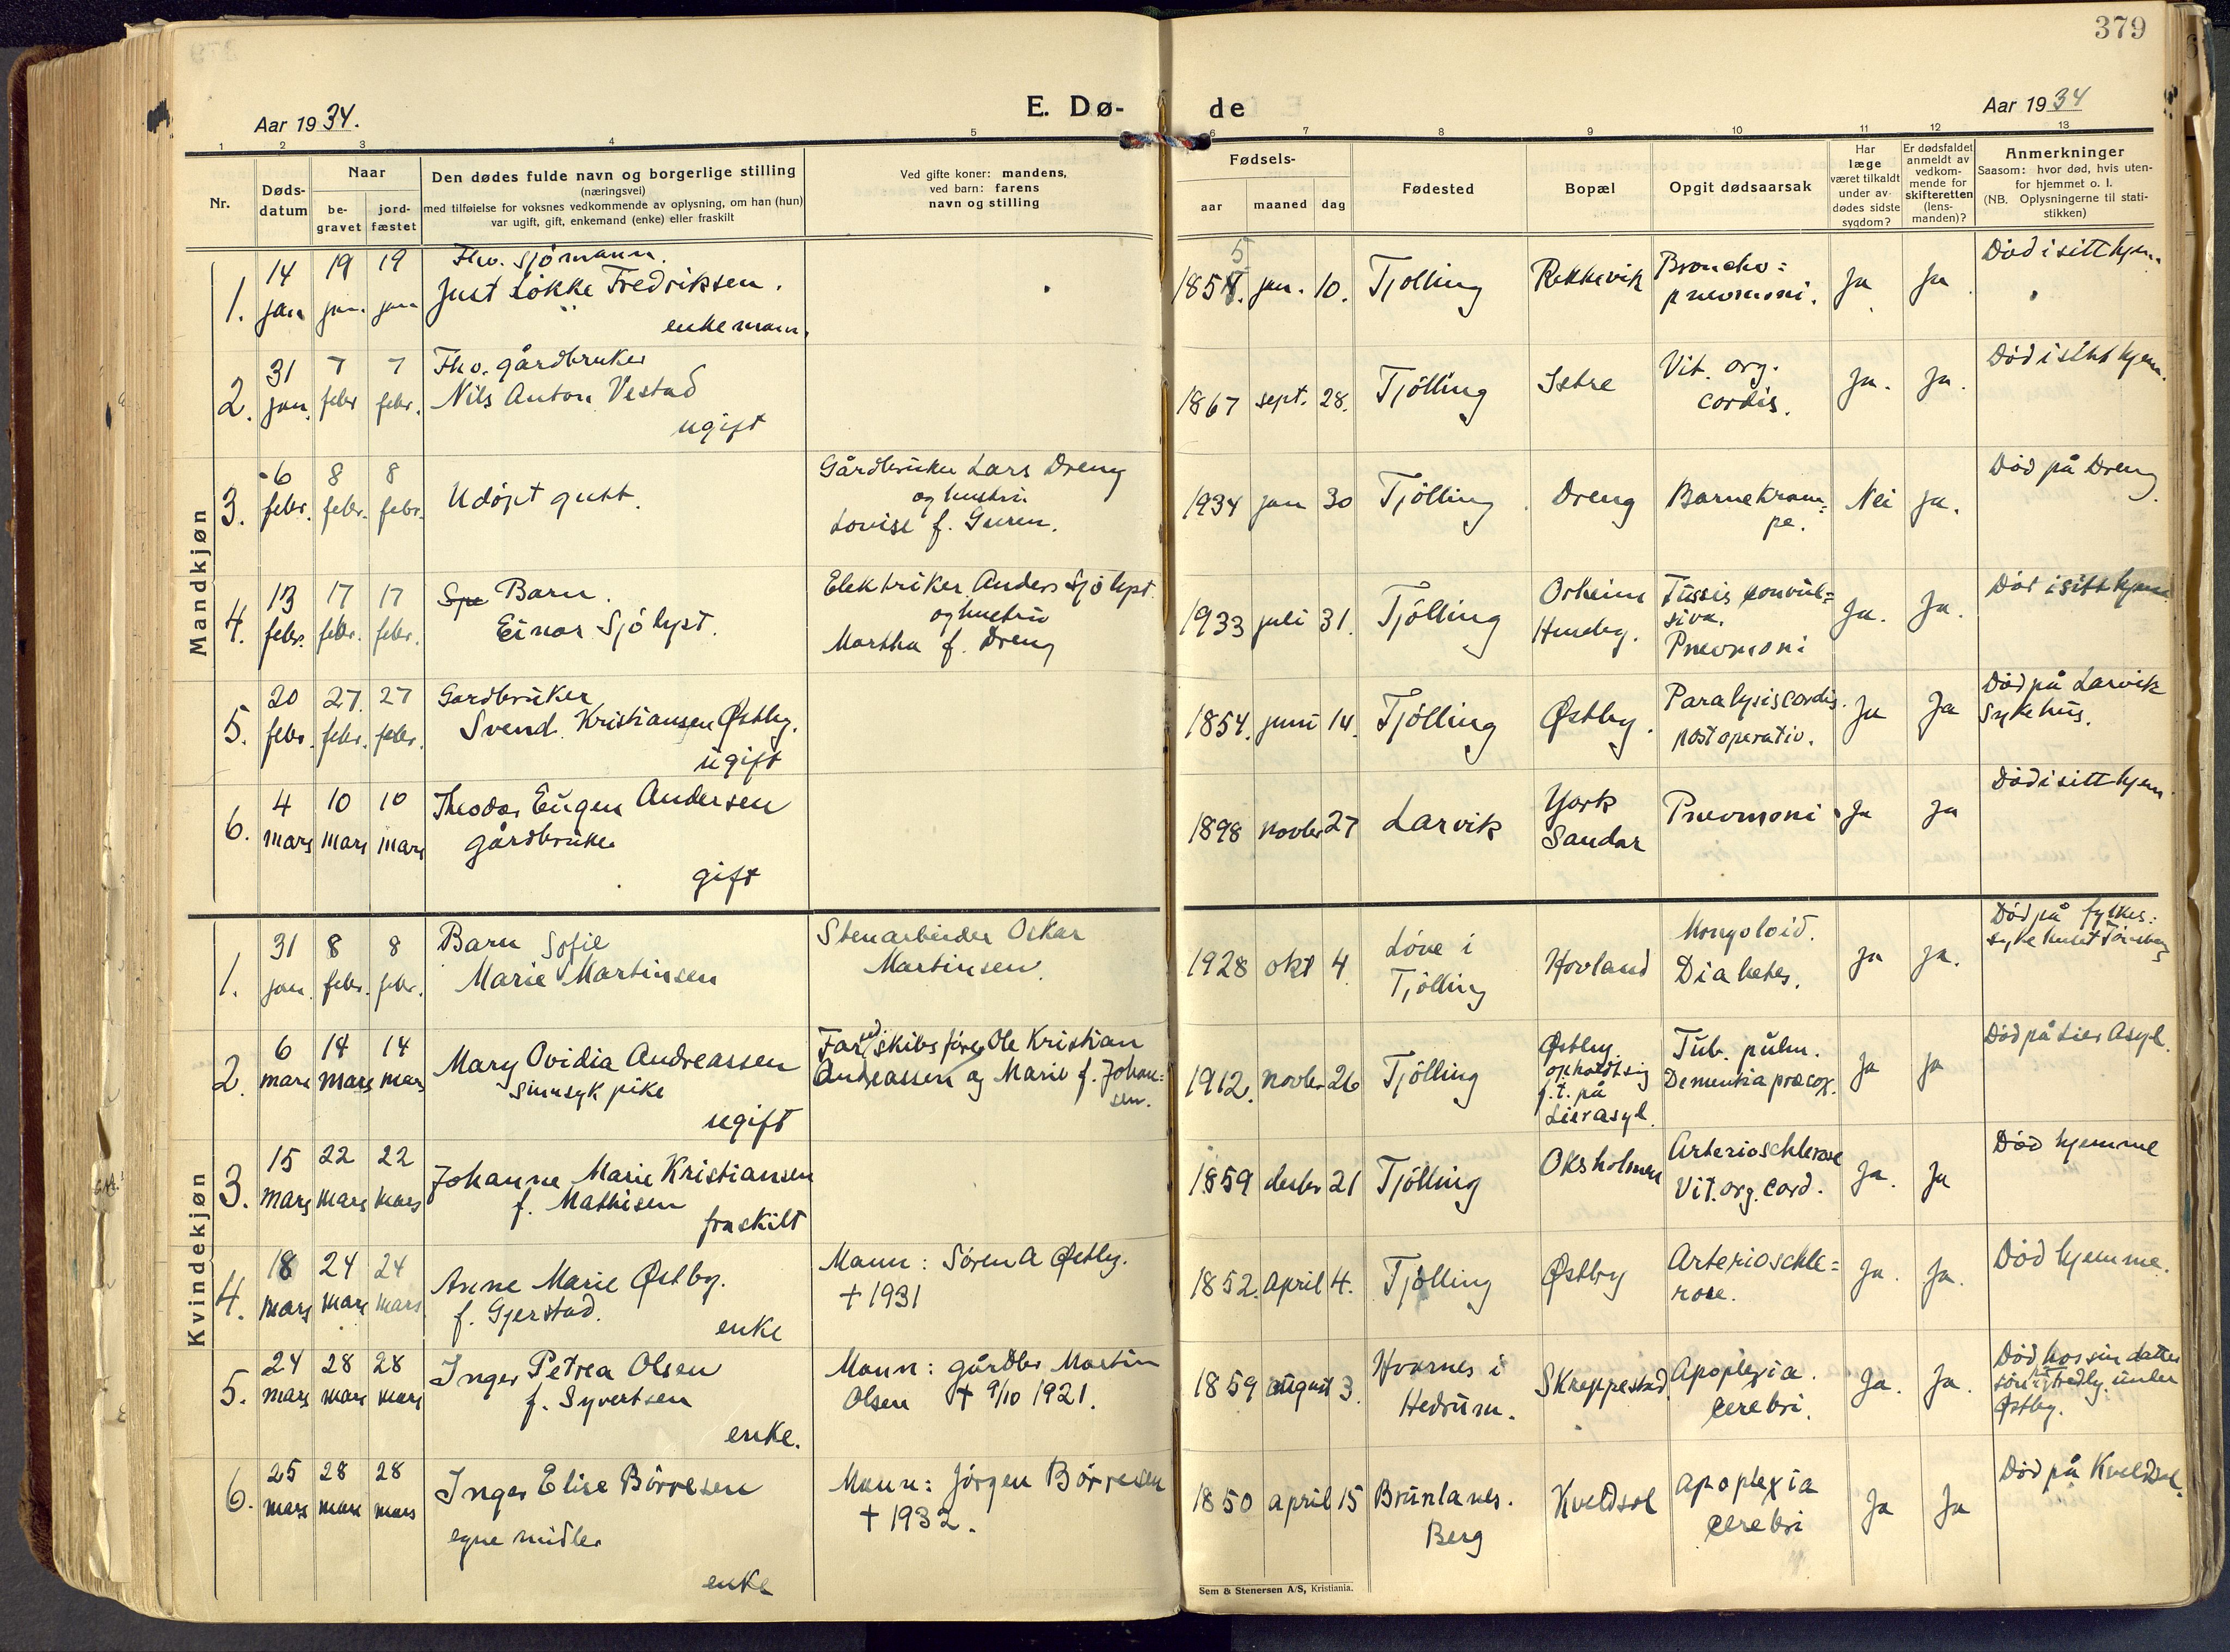 379
Aar 1934.
E. Dø-
de
Aar 1934
1 2 3 4 5 6 7 8 9 10 11 12 13
Nr.
Døds-
datum
Naar
be-
gravet
jord-
fæstet
Den dødes fulde navn og borgerlige stilling
(næringsvei)
med tilføielse for voksnes vedkommende av oplysning, om han (hun)
var ugift, gift, enkemand (enke) eller fraskilt
Ved gifte koner: mandens,
ved barn: farens
navn og stilling
Fødsels-
aar
maaned
dag
Fødested
Bopæl
Opgit dødsaarsak
Har
læge
været tilkaldt
under av-
dødes sidste
sygdom?
Er dødsfaldet
anmeldt av
vedkom-
mende for
skifteretten
(lens-
manden)?
Anmerkninger
Saasom: hvor død, hvis uten-
for hjemmet o. l.
(NB. Oplysningerne til stati-
stikken)
Mandkjøn
1.
14
jan
19
jan.
19
jan
Fhv. sjømann.
Just Løkke Fredriksen.
enkemann.
5
1857. jan. 10.
Tjølling
Rekkevik
Broncho=
pneumoni.
Ja
Ja
Død i sitt hjem
2.
31
jan.
7
febr
7
febr.
Fhv. gårdbruker
Nils Anton Vestad
ugift
1867 sept. 28.
Tjølling
Istre
Vit. org.
cordis.
Ja.
Ja.
Død i sitt hjem.
3.
6
febr.
8
febr.
8
febr.
Udøpt gutt.
Gårdbruker Lars Dreng
og hustru
Lovise f. Guren.
1934 jan 30
Tjølling
Dreng
Barnekram=
pe.
Nei
Ja.
Død på Dreng.
4.
13
febr.
17
febr.
17
febr.
Spe Barn.
Einar Sjølyst.
Elektriker Anders Sjølyst.
og hustru
Martha f. Dreng
1933 juli 31.
Tjølling
Orheim
Huseby.
Tussis convul=
siva.
Pneumoni
Ja.
Ja.
Død i sitt hjem
5.
20
febr.
27.
febr.
27
febr.
Gardbruker
Svend Kristiansen Østby.
ugift
1854. juni 14.
Tjølling
Østby.
Paralysis cordis.
post operativ.
Ja
Ja
Død på Larvik
Sykehus.
6.
4
mars
10
mars
10
mars
Theodor Eugen Andersen
gårdbruker
gift
1898 novbr 27
Larvik
York
Sandar
Pneumoni
Ja
Ja
Død i sitt hjem.
Kvindekjøn
1.
31
jan.
8
febr.
8
febr.
Barn Sofie
Marie Martinsen
Stenarbeider Oskar
Martinsen.
1928 okt 4.
Løve i
Tjølling
Hovland
Mongoloid.
Diabetes.
Ja
Ja.
Død på fylkes:
sykehuset Tønsberg
2.
6
mars
14
mars
14
mars
Mary Ovidia Andreassen
Sinnsyk pike
ugift
Far: skibsfører Ole Kristian
Andreassen og Marie f. Johan=
sen.
1912. novbr 26
Tjølling
Østby.
opholdt sig
f. t. på
Lierasyl.
Tub. pulm.
Dementia præcox.
Ja
Ja
Død på Lier Asyl.
3.
15
mars
22
mars
22
mars
Johanne Marie Kristiansen
f. Mathisen
fraskilt
1859 desbr 21
Tjølling
Oksholmen
Arterioschlerose
Vit. org. cord.
Ja.
Ja
Død hjemme
4.
18
mars
24
mars
24
mars
Anne Marie Østby.
f. Gjerstad.
enke
Mann: Søren A Østby.
† 1931
1852. April 4.
Tjølling
Østby
Arterioschle=
rose.
Ja.
Ja.
Død hjemme.
5.
24
mars
28
mars
28
mars
Inger Petrea Olsen
f. Syvertsen
enke.
Mann: gårdbr Martin
Olsen † 9/10 1921.
1859 august 3.
Hvarnes i
Hedrum.
Skreppestad.
Apoplexia.
cerebri.
Ja.
Ja.
Død hos sin datter
under
Østby.
6.
25
mars
28
mars
28
mars
Inger Elise Børresen
egne midler
enke
Mann: Jørgen Børresen
† 1932.
1850 april 15
Brunlanes.
Berg
Kveldsol
Apoplexia
cerebri
Ja
Ja
Død på Kveldsol.
Sem & Stenersen A/S, Kristiania.